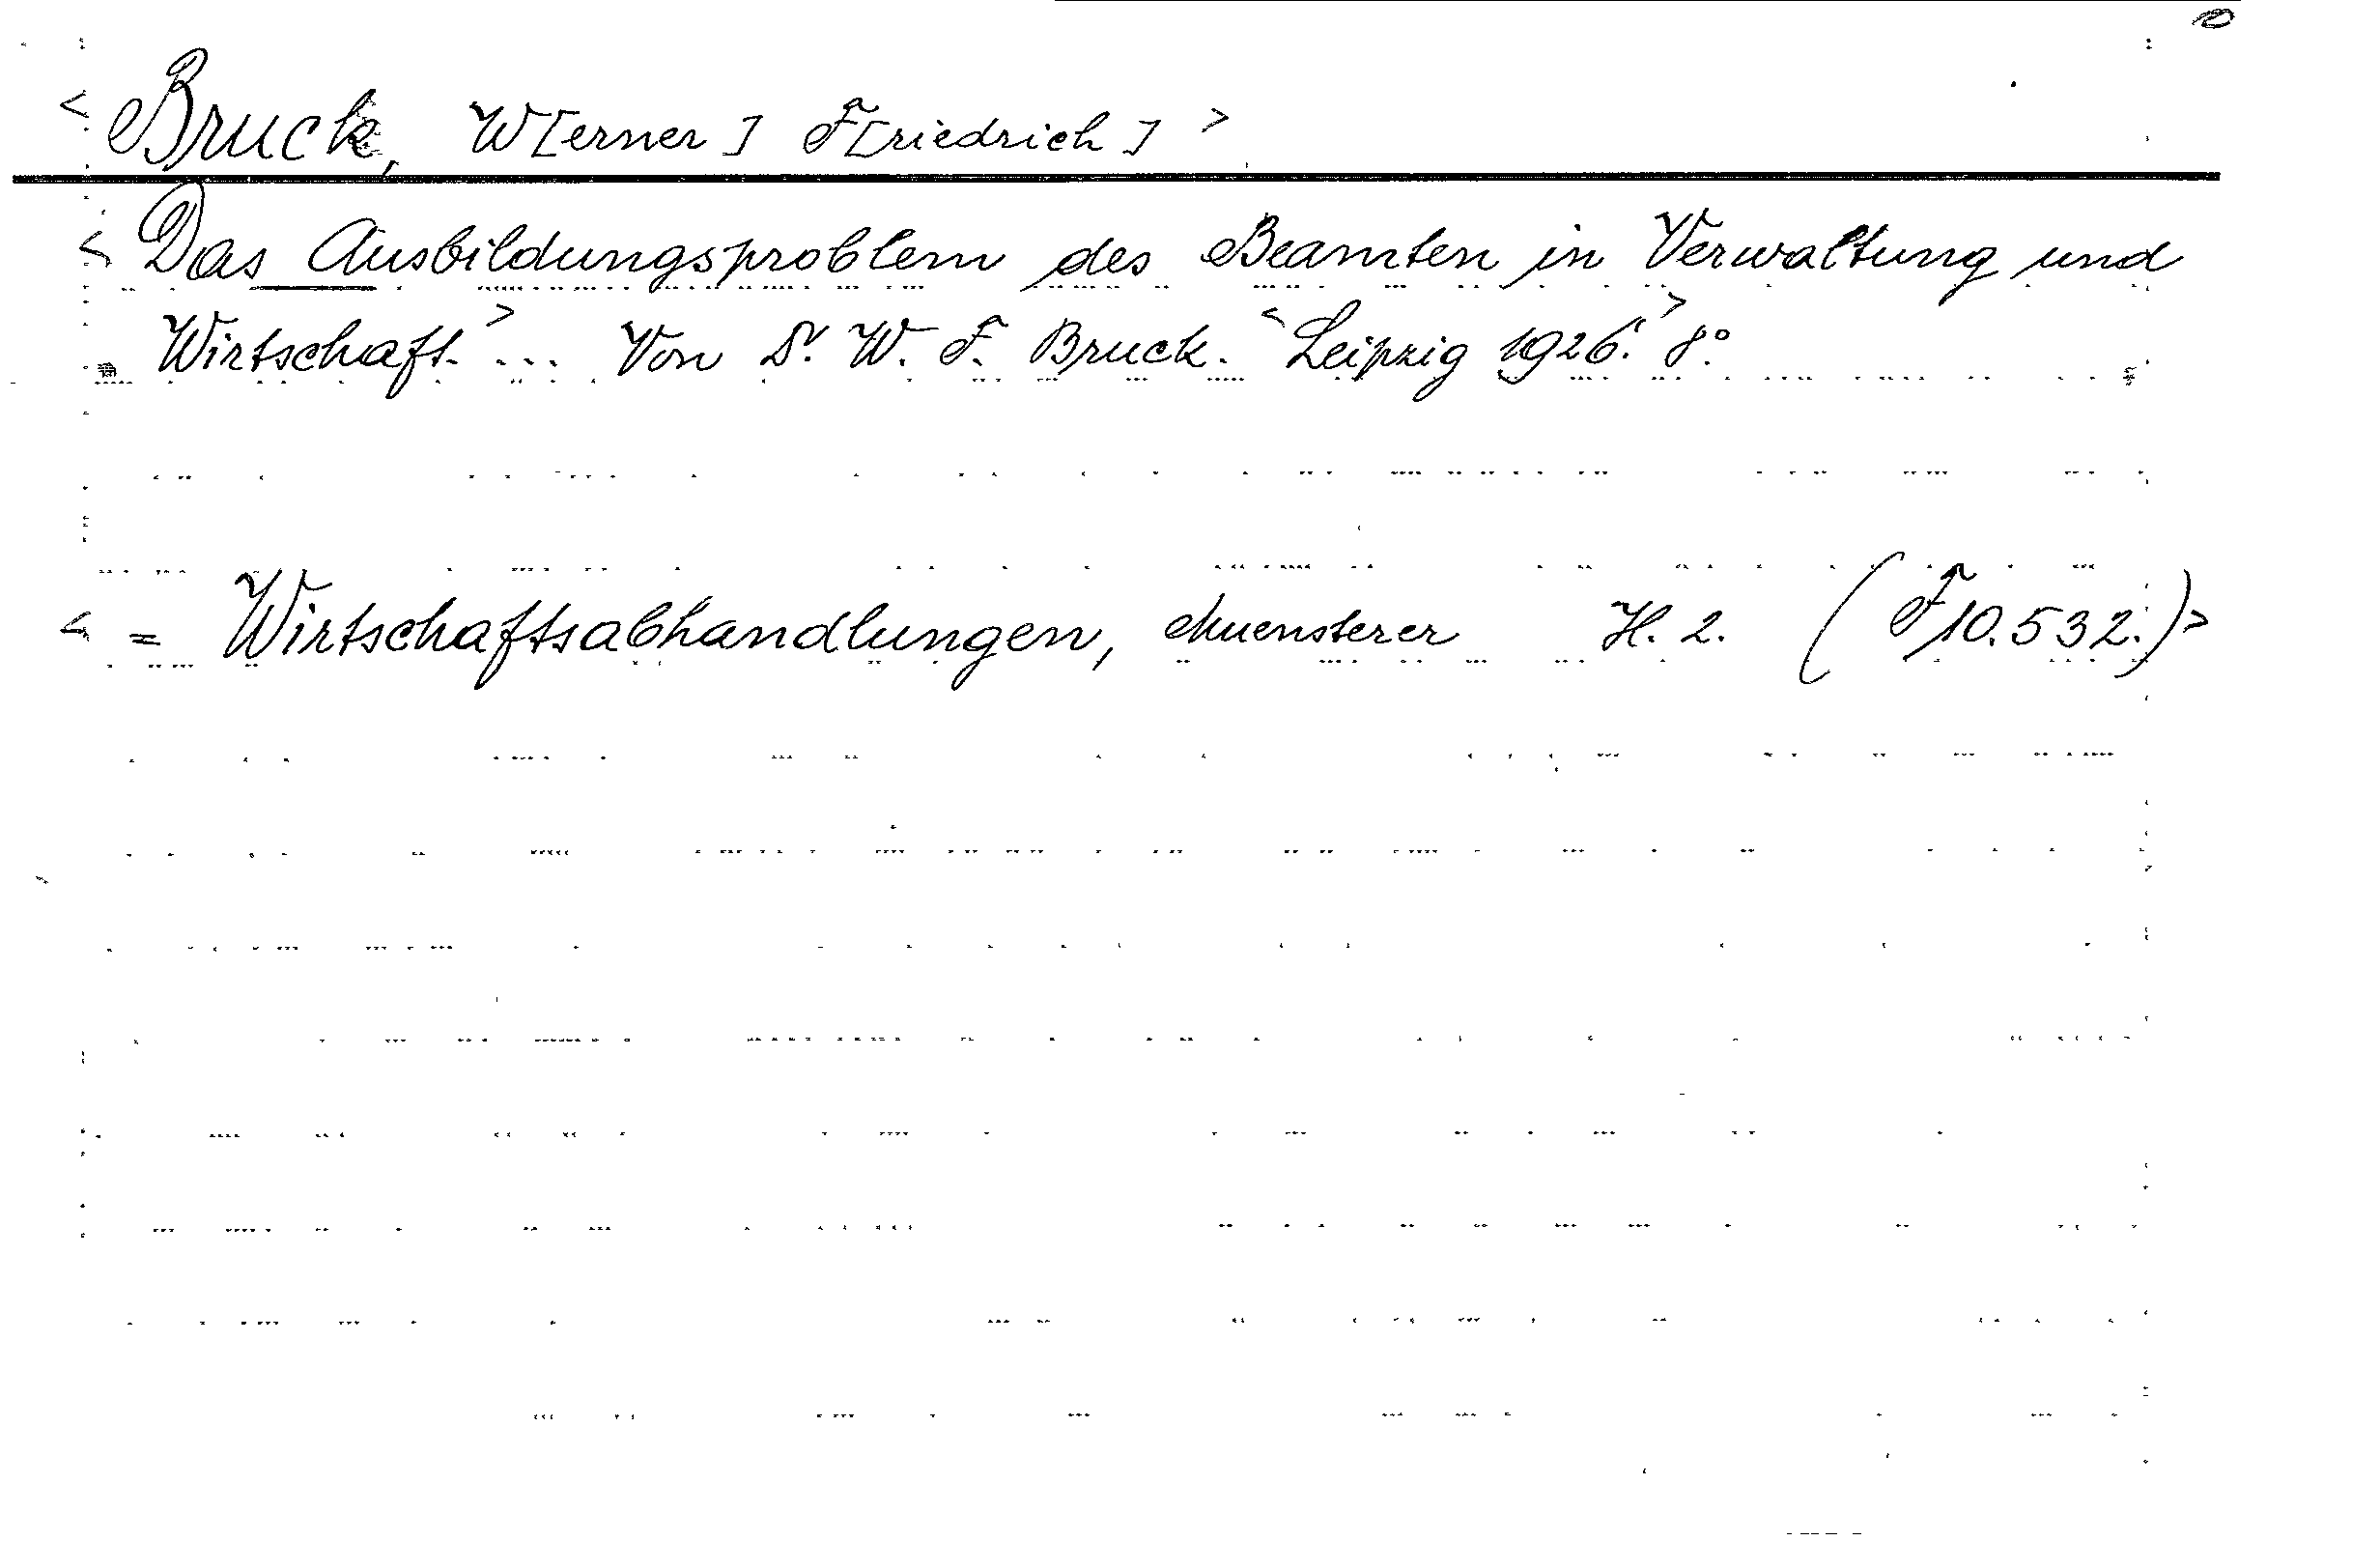 < Bruck, W[erner] F[riedrich] >
< Das Ausbildungsproblem des Beamten in Verwaltung und
Wirtschaft. > ... Von Dr. W. F. Bruck. < Leipzig 1926. > 8°.
< = Wirtschaftsabhandlungen, Muensterer H. 2. (F 10.532.) >